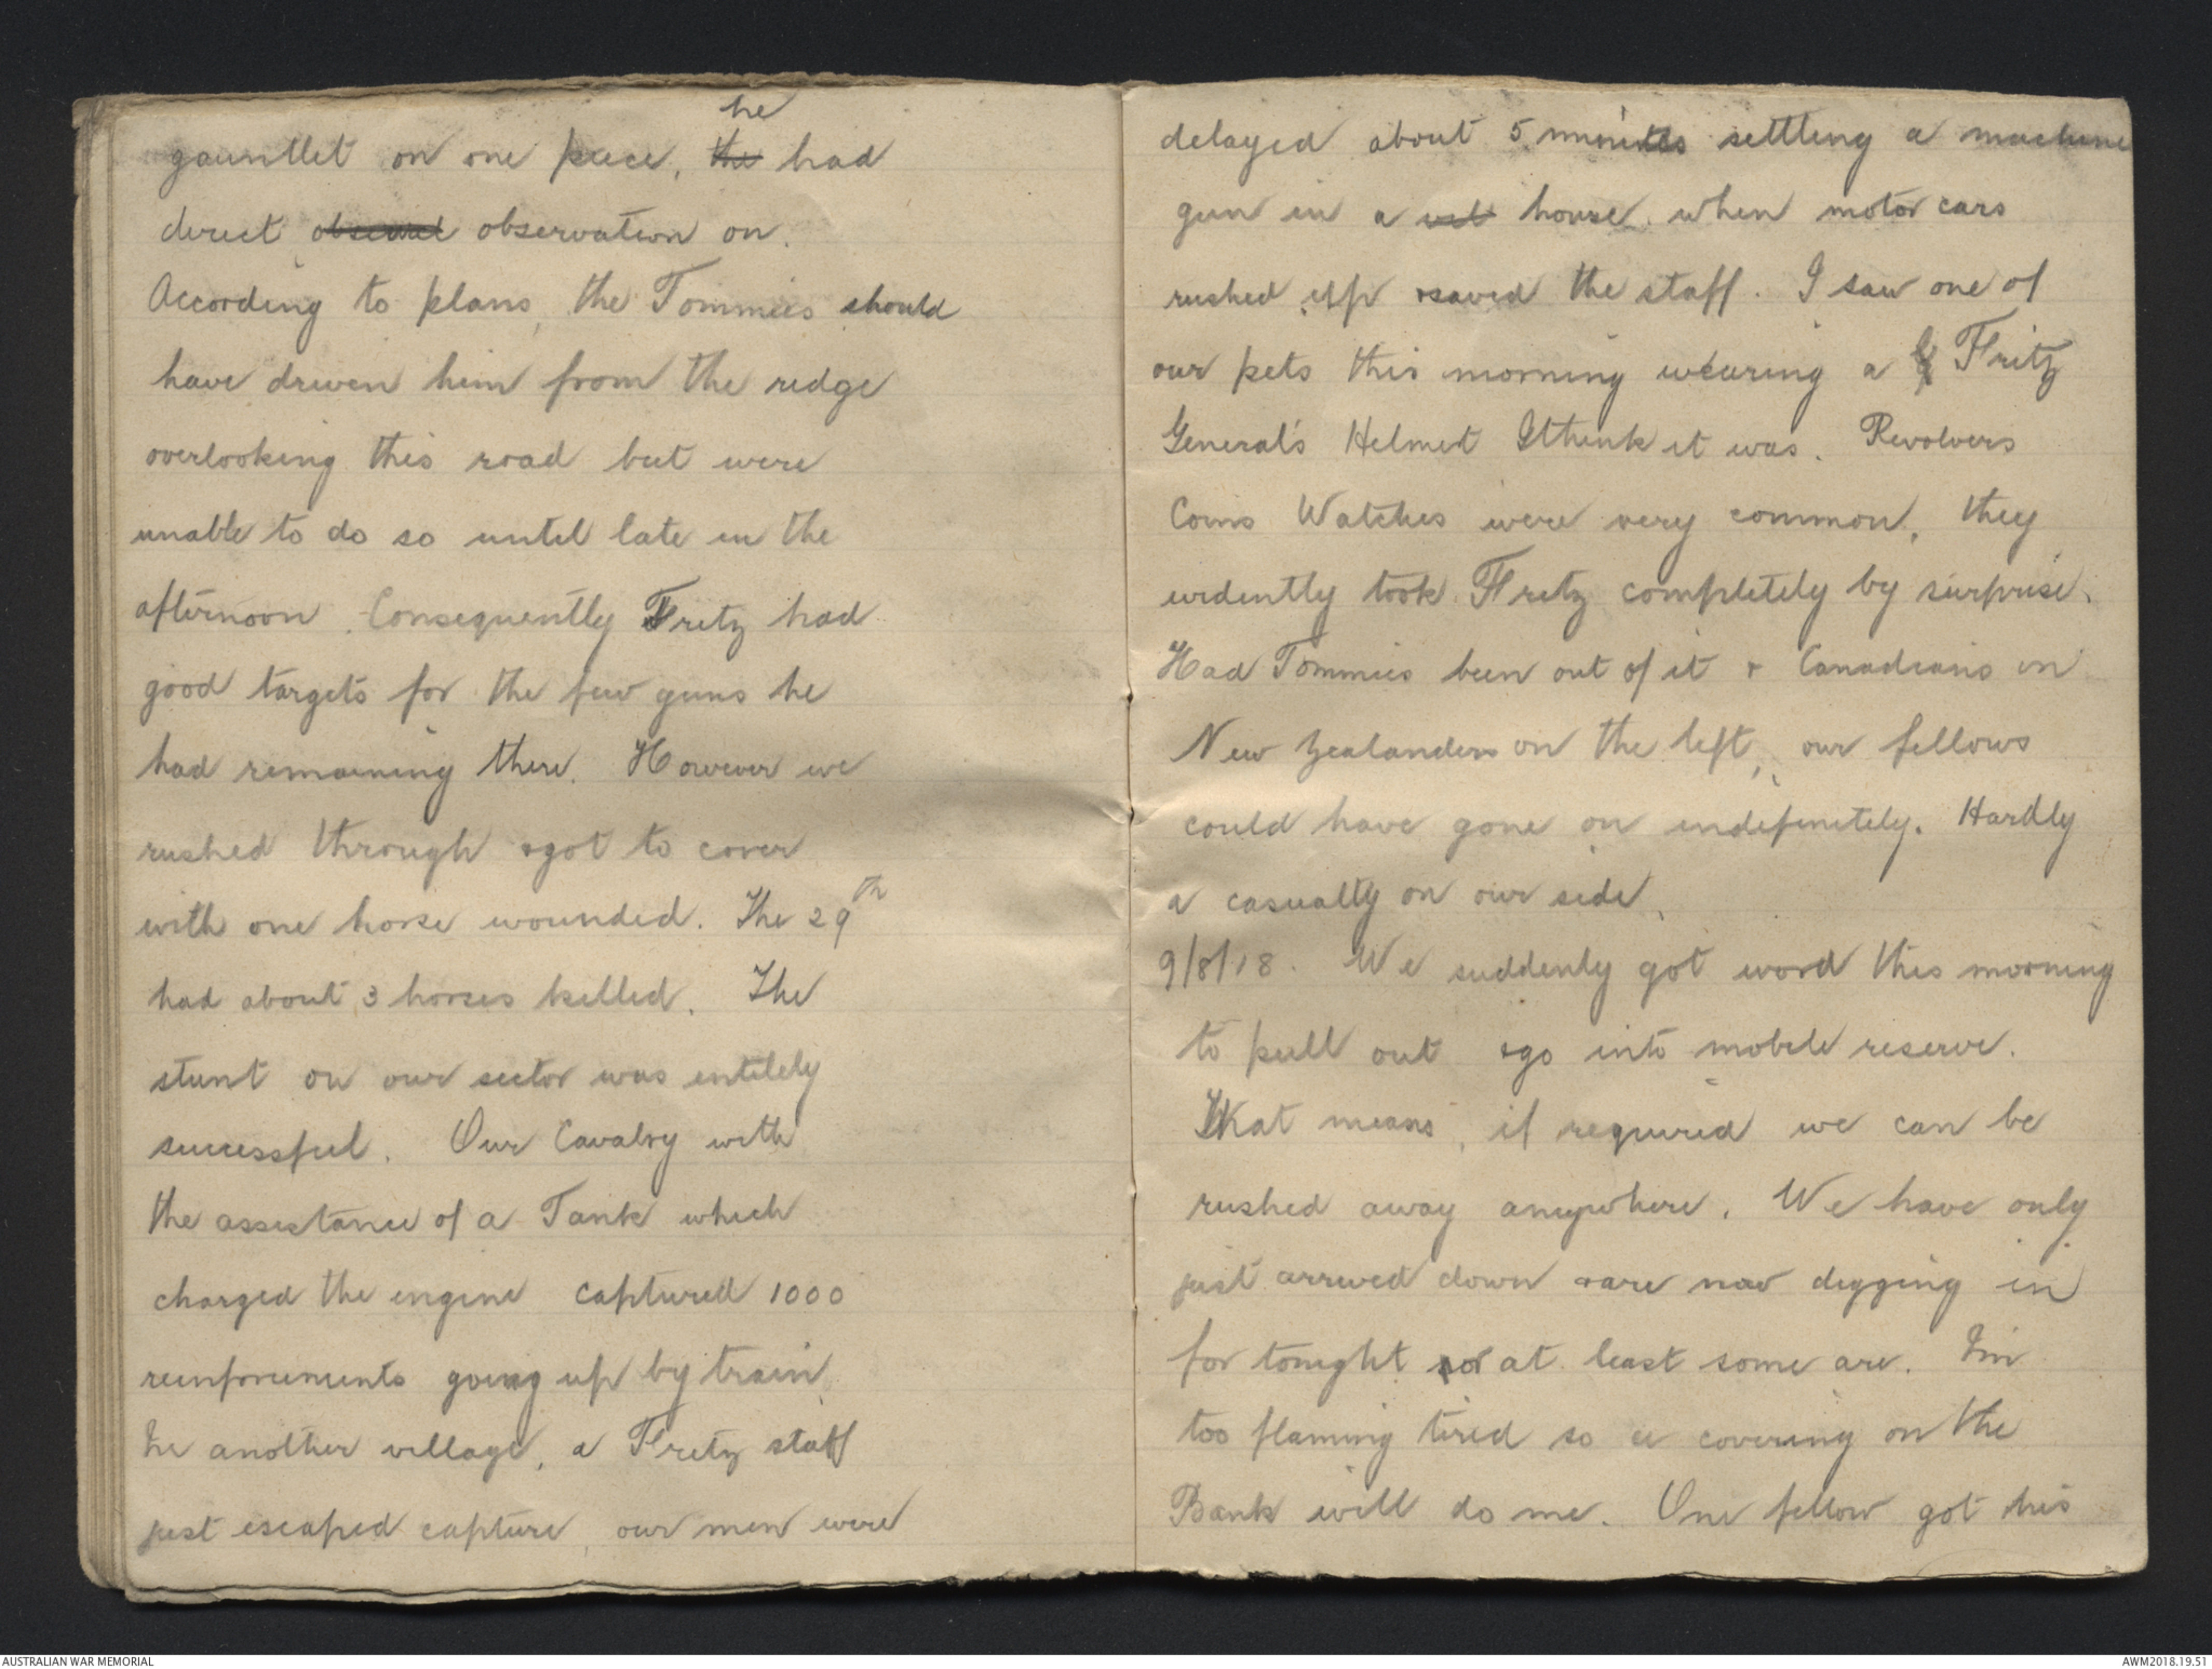 he
gauntlet on one piece, the had
direct obscured observation on.
According to plans, the Tommies should
have driven him from the ridge
overlooking this road but were
unable to do so until late in the
afternoon. Consequently Fritz had
good targets for the few guns he
had remaining there. However we
rushed through & got to cover
with one horse wounded. The 29th
had about 3 horses killed. The
stunt on our sector was entilely
successful. Our Cavalry with
the assistance of a Tank which
charged the engine captured 1000
reinforcements going up by train
In another village, a Fritz staff
just escaped capture, our men were
delayed about 5 minutes settling a machine
gun in a house. when motor cars
rushed up & saved the staff. I saw one of
our pets this morning wearing a Fritz
General's Helmet I think it was. Revolvers
Coins Watches were very common, they
evidently took Fritz completely by surprise.
Had Tommies been out of it & Canadians in
New Zealanders on the left, our fellows
could have gone on indefinitely. Hardly
a casualty on our side.
9/8/18. We suddenly got word this morning
to pull out & go into mobile reserve.
That means, if required we can be
rushed away anywhere. We have only
just arrived down & are now digging in
for tonight or at least some are. I'm
too flaming tired so a covering on the
Bank will do me. One fellow got his
AUSTRALIAN WAR MEMORIAL
AWM2018.19.51